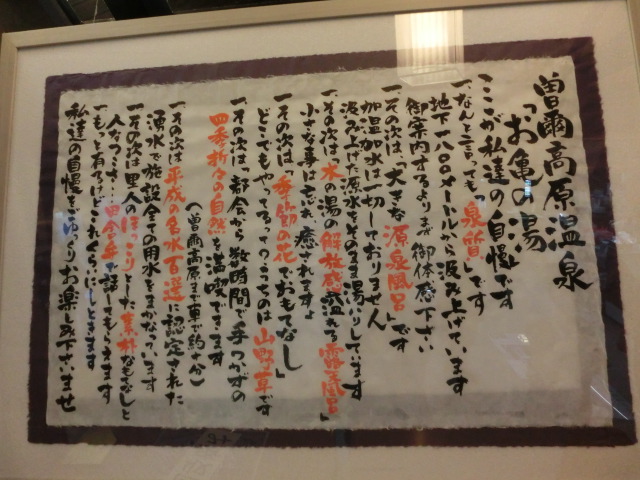 曽爾高原温泉
「お亀の湯」
ここが私達の自慢です
一、なんと言っても「泉質」です
地下一八〇〇メートルから汲み上げています
御案内するよりまず御体感下さい
一、その次は「大きな源泉風呂」です
加温加水は一切しておりません
汲み上げた源水をそのまま湯入りしています
一、その次は「木の湯の解放感溢れる露天風呂」
小さな事は忘れ、癒されますよ
一、その次は「季節の花でおもてなし」
どこでもやってるってうちのは山野草です
一、その次は「都会から数時間で手つかずの
四季折々の自然を満喫できます
(曽爾高原まで車で約十分)
一、その次は平成の名水百選に認定された
湧水で施設全ての用水をまかなっています
一、その次は里人のほっこりとした素朴なもてなしと
人なつこさ…田舎弁で話してもらえます
一、もっと有るけどこれくらいにしときます
私達の自慢をごゆっくりお楽しみ下さいませ